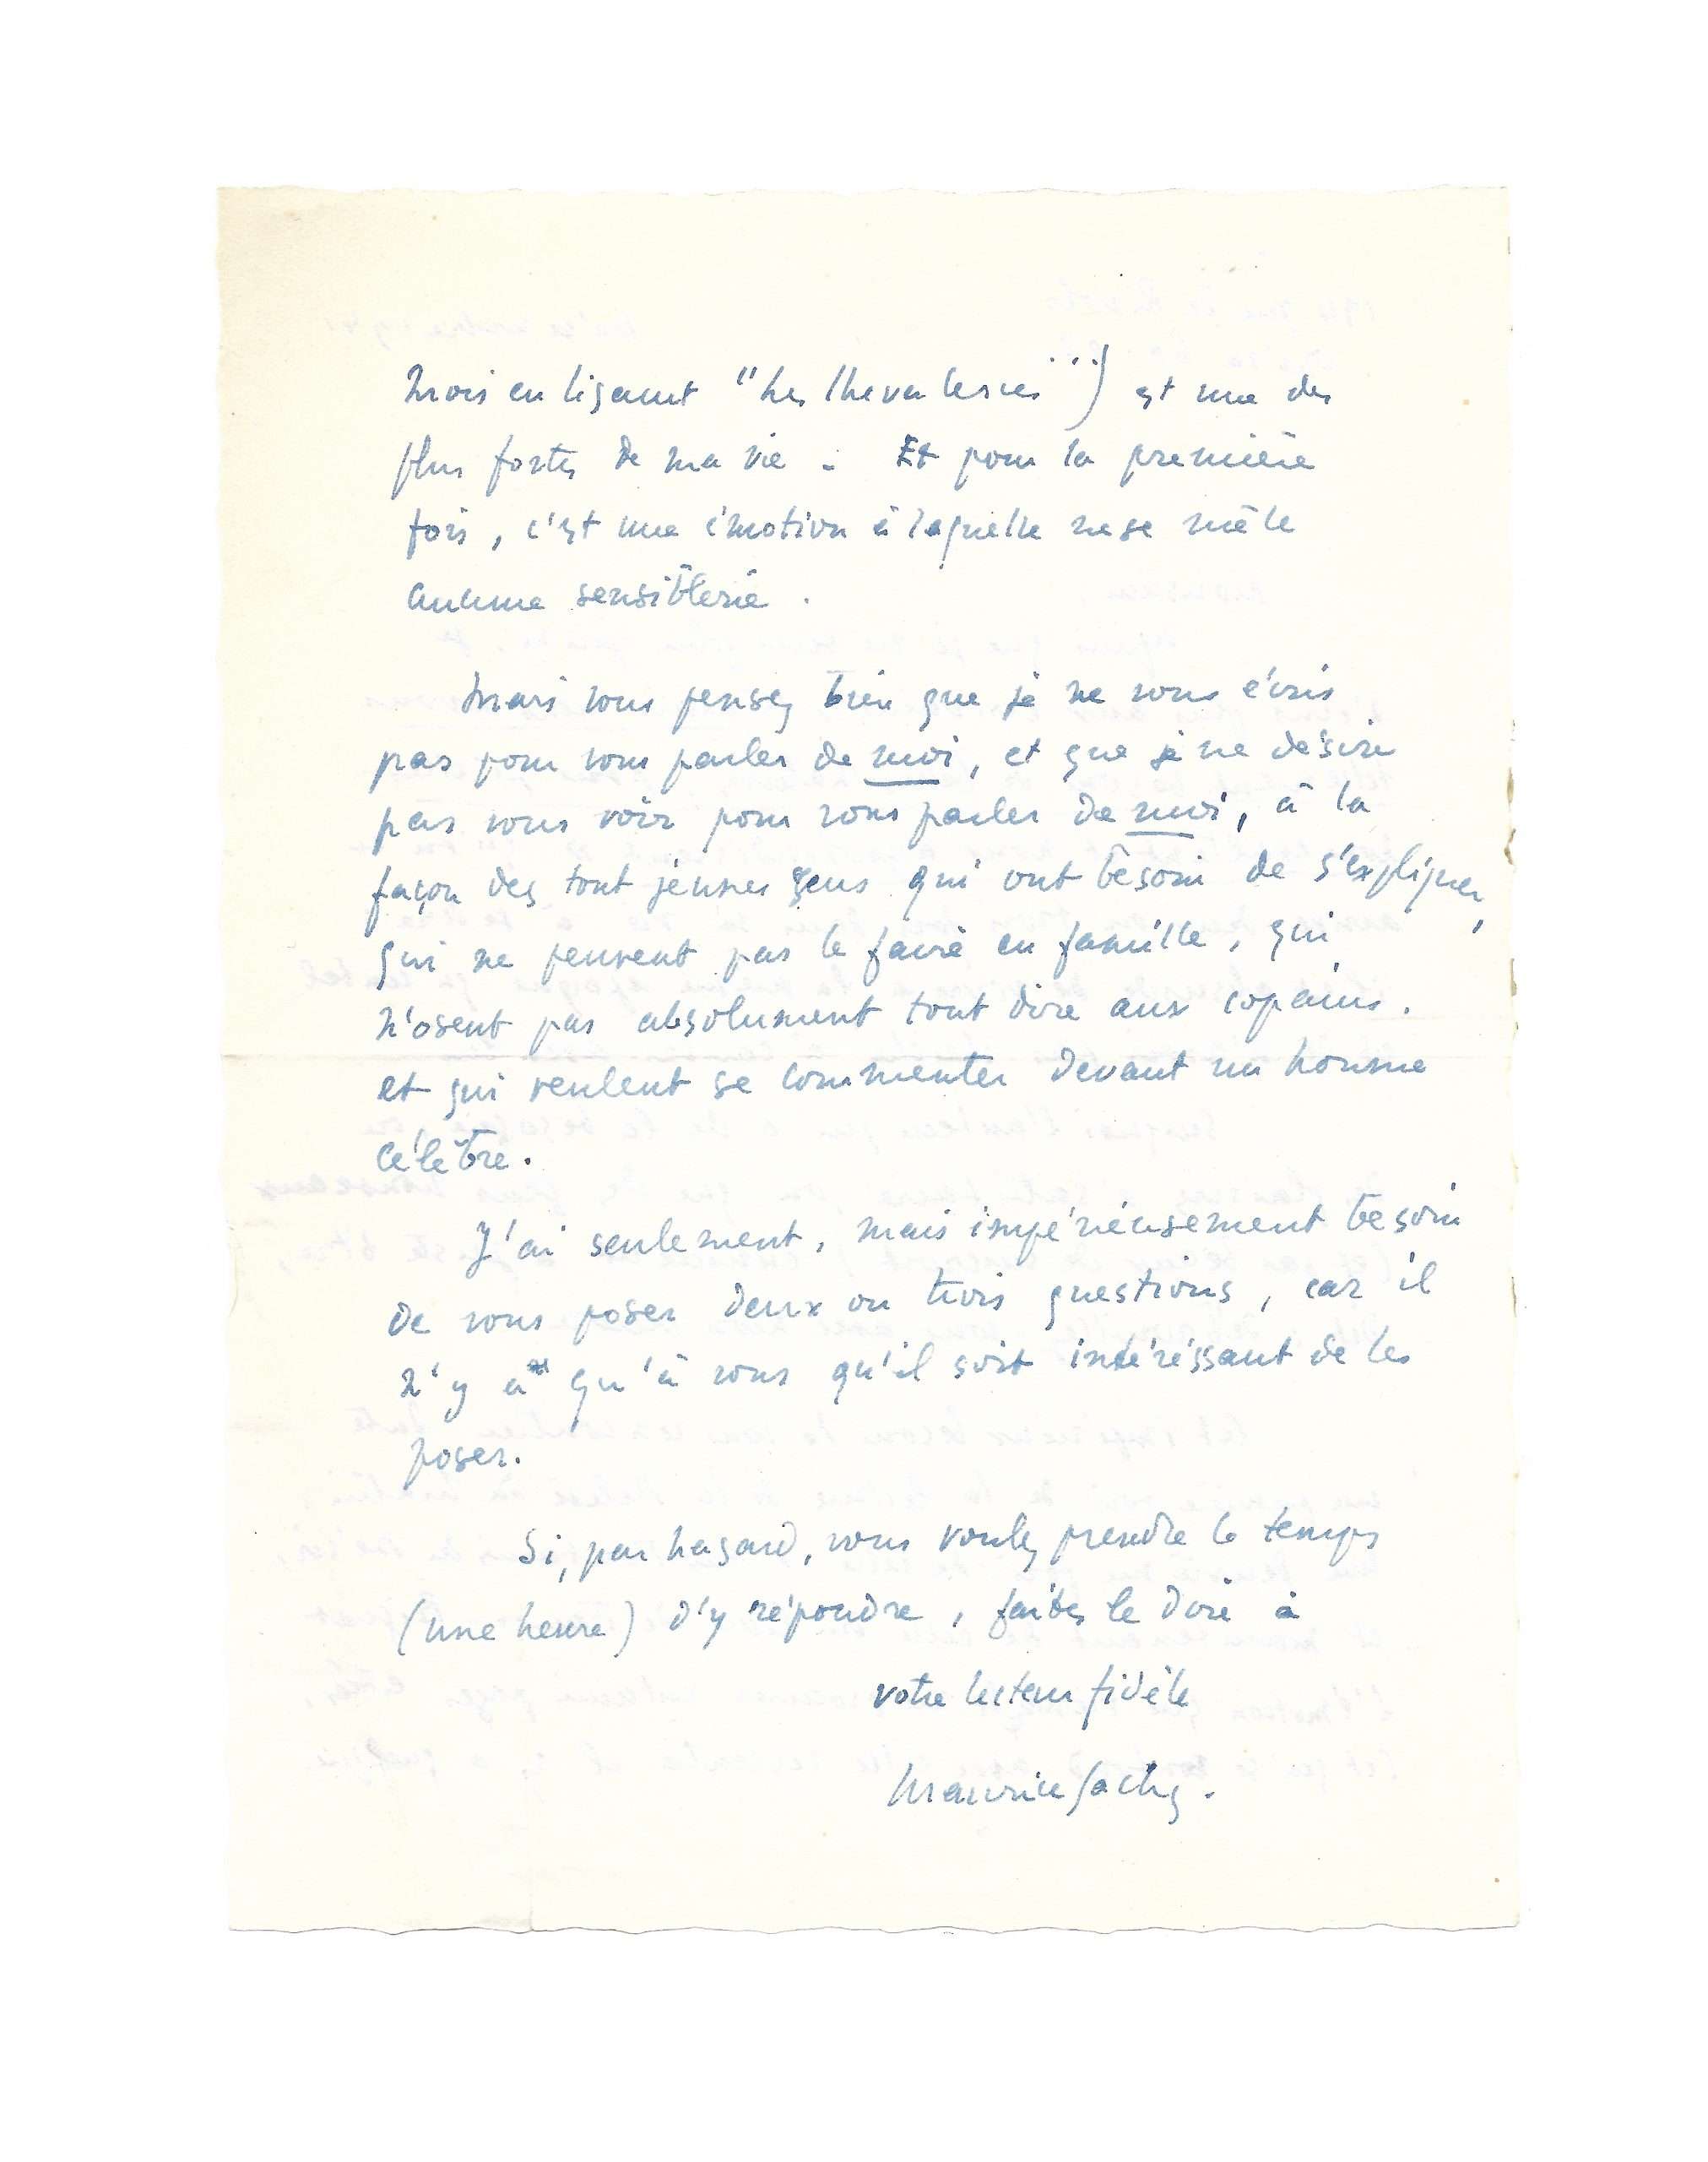 mois en lisant "Les Chevaleries") est une des
plus fortes de ma vie. Et pour la première
fois, c'est une émotion à laquelle ne se mêle
aucune sensiblerie.
Mais vous pensez bien que je ne vous écris
pas pour vous parler de moi, et que je ne désire
pas vous voir pour vous parler de moi, à la
façon des tout jeunes gens qui ont besoin de s'expliquer,
qui ne peuvent pas le faire en famille, qui
n'osent pas absolument tout dire aux copains.
et qui veulent se commenter devant un homme
célèbre.
J'ai seulement, mais impérieusement besoin
de vous poser deux ou trois questions, car il
n'y a qu'à vous qu'il soit intéressant de les
poser.
Si, par hasard, vous voulez prendre le temps
(une heure) d'y répondre, faites le dire à
votre lecteur fidèle
Maurice Sachs.